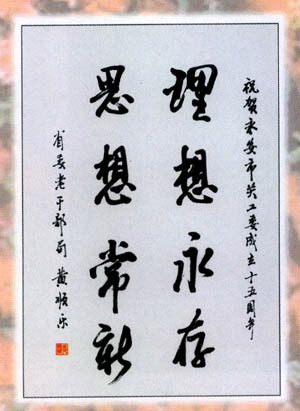 祝贺永安市关工委成立十五周年
理想永存
思想常新
省委老干部局 黄顺